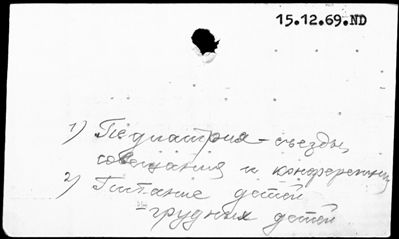 15.12.69.ND
1) Педиатрия - съезды,
совещания и конференции
2) Питание детей
- грудных детей